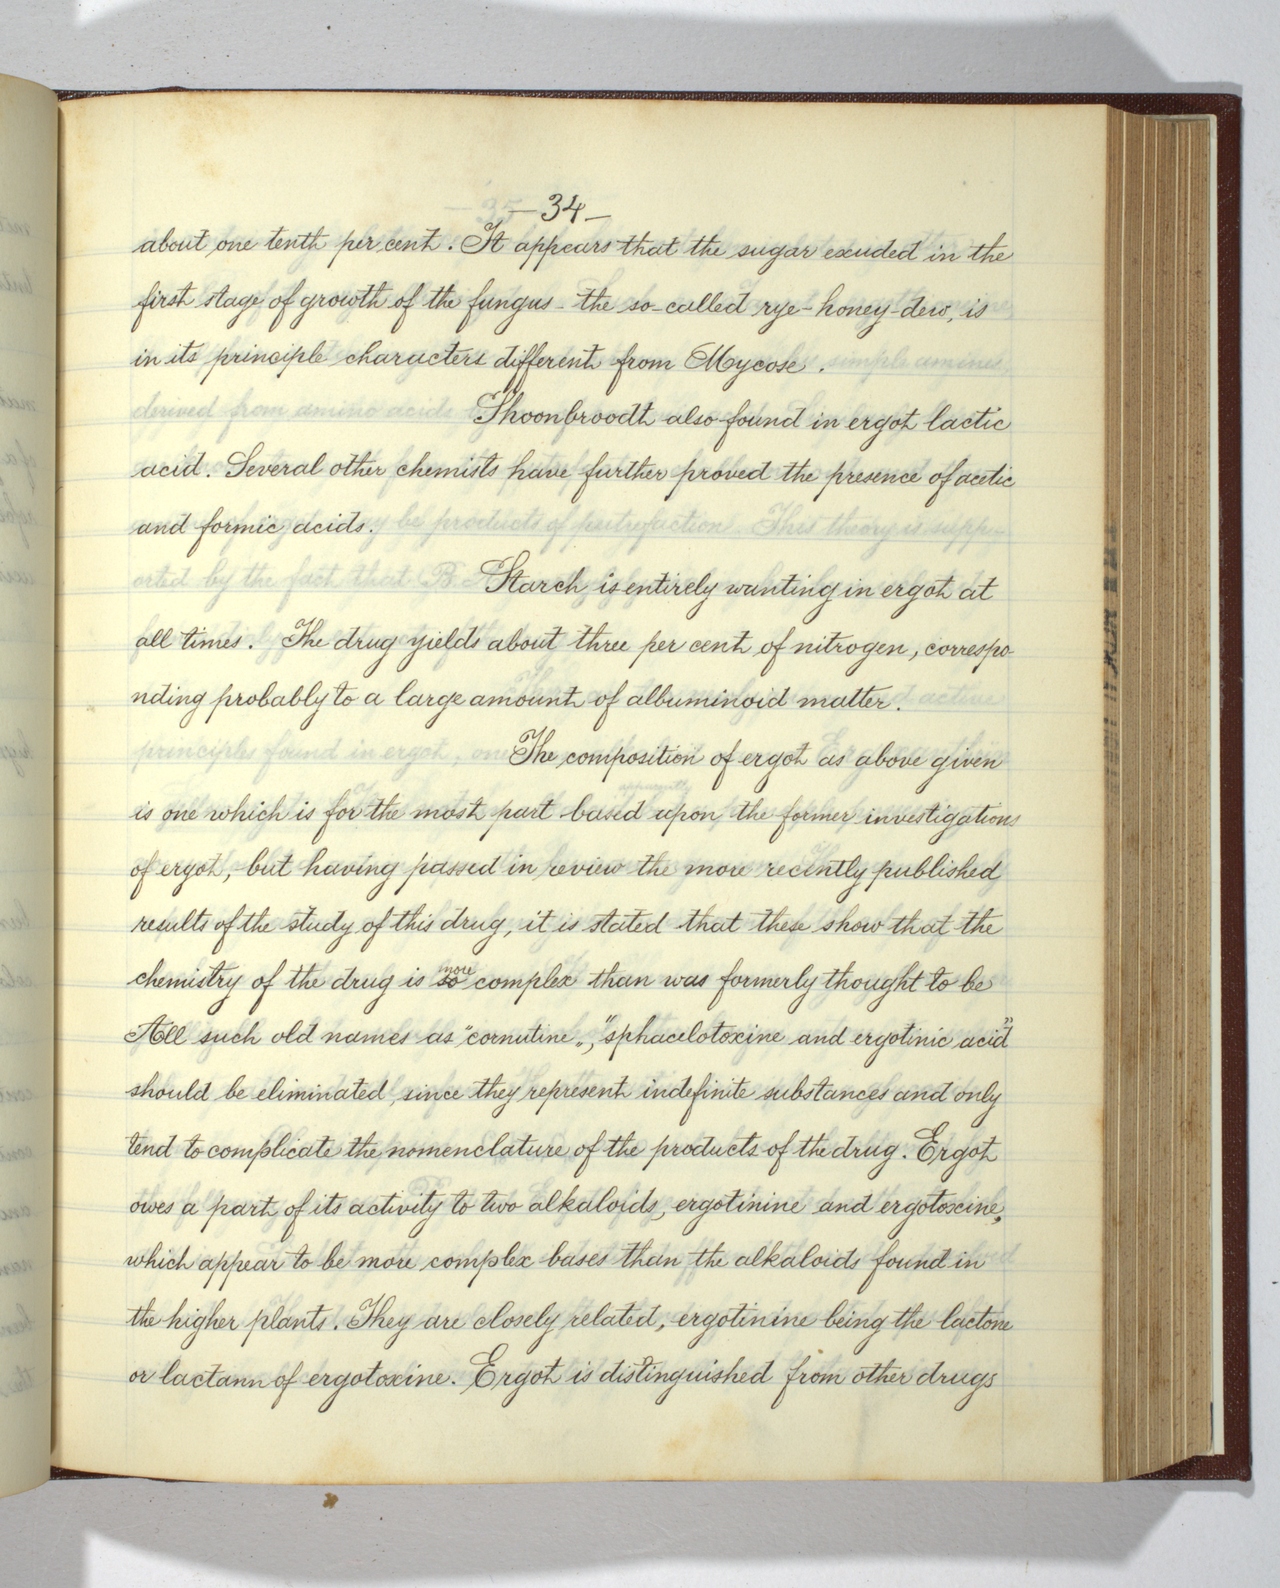 —34—
about one tenth per cent. It appears that the sugar exuded in the
first stage of growth of the fungus - the so-called rye-honey-dew, is
in its principle characters different from Mycose.
Shoonbroodt also found in ergot lactic
acid. Several other chemists have further proved the presence of acetic
and formic acids.
Starch is entirely wanting in ergot at
all times. The drug yields about three per cent of nitrogen, correspo-
nding probably to a large amount of albuminoid matter.
The composition of ergot as above given
is one which is for the most part based upon the former investigations
of ergot, but having passed in review the more recently published
results of the study of this drug, it is stated that these show that the
chemistry of the drug is so more complex than was formerly thought to be
All such old names as "cornutine", "sphacelotoxine and ergotinic acid"
should be eliminated, since they represent indefinite substances and only
tend to complicate the nomenclature of the products of the drug. Ergot
owes a part of its activity to two alkaloids, ergotinine and ergotoxine,
which appear to be more complex bases than the alkaloids found in
the higher plants. They are closely related, ergotinine being the lactone
or lactann of ergotoxine. Ergot is distinguished from other drugs